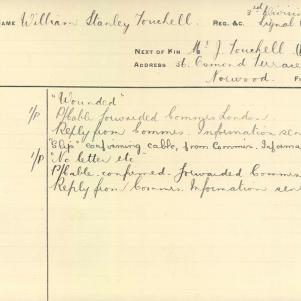 NAME William Stanley Touchell REG. &C. 3rd Division
Signal
NEXT OF KIN Mr J. Touchell
ADDRESS 36. Osmond Terrace
Norwood.
"Wounded"
1/P P/Cable forwarded Commrs London.
Reply from Commrs. Information sent
"Slip" confirming cable, from Commrs. Informa
1/P "No letter etc"
P/Cable confirmed. Forwarded Commrs
Reply from Commrs. Information sent